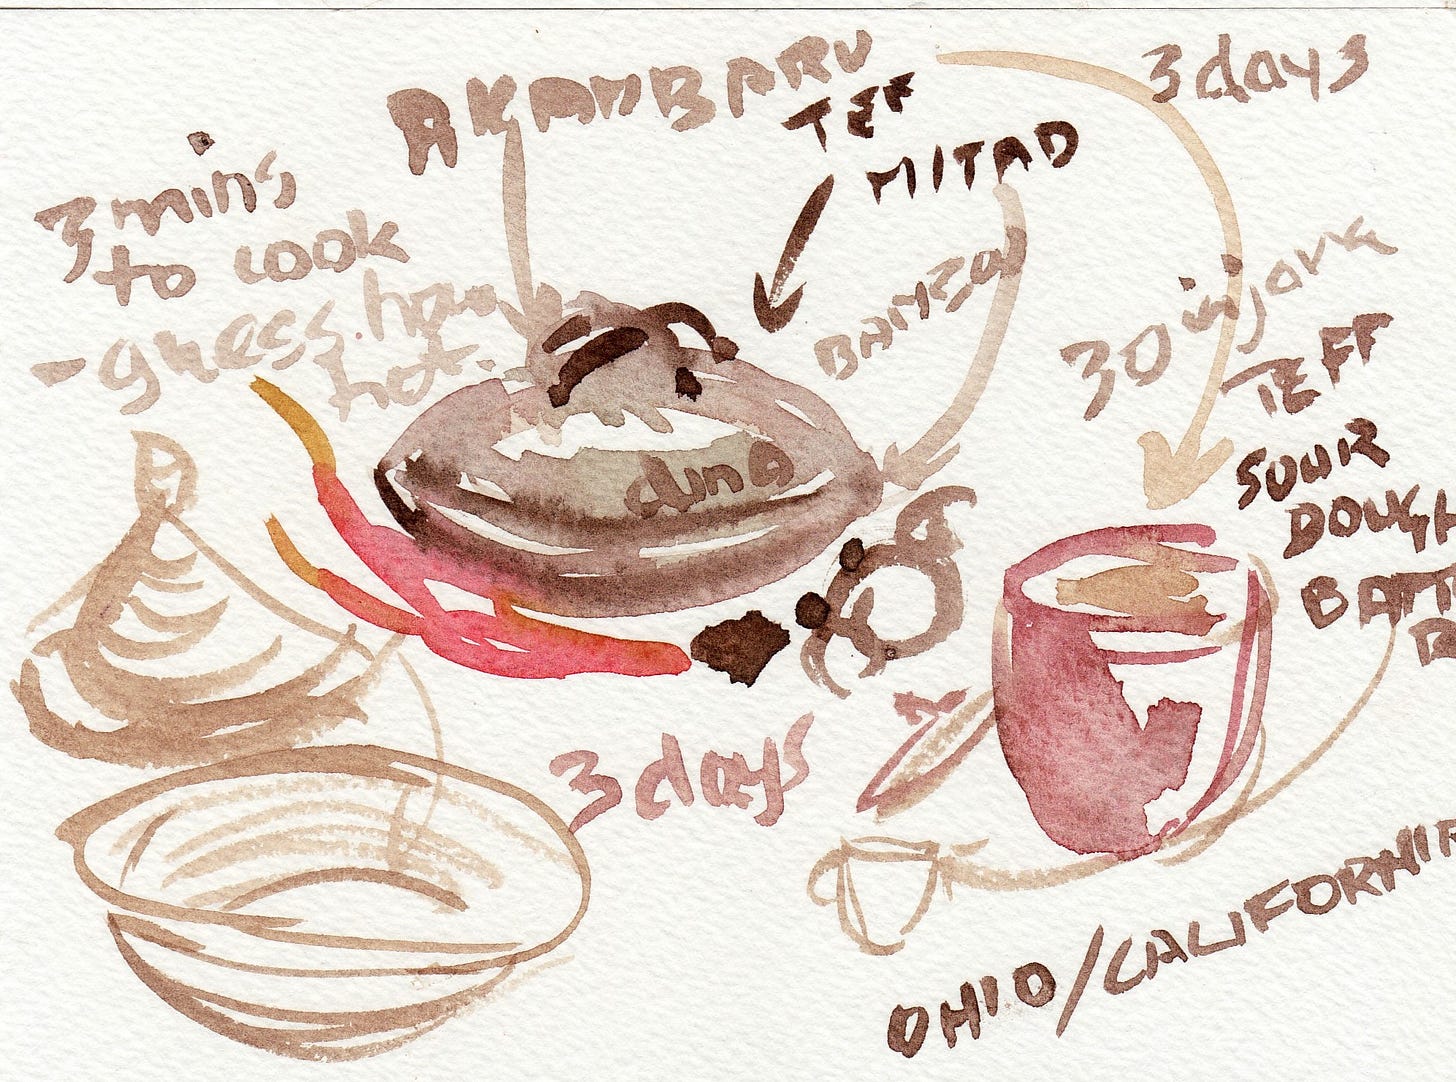 AKAMBARU
3 days
TEF
MITAD
3 mins
to cook
- guess. how
hot.
BAMZA
30 injara
TEFF
SOUR
DOUGH
BATT
B
duna
3 days
OHIO/CALIFORNIA